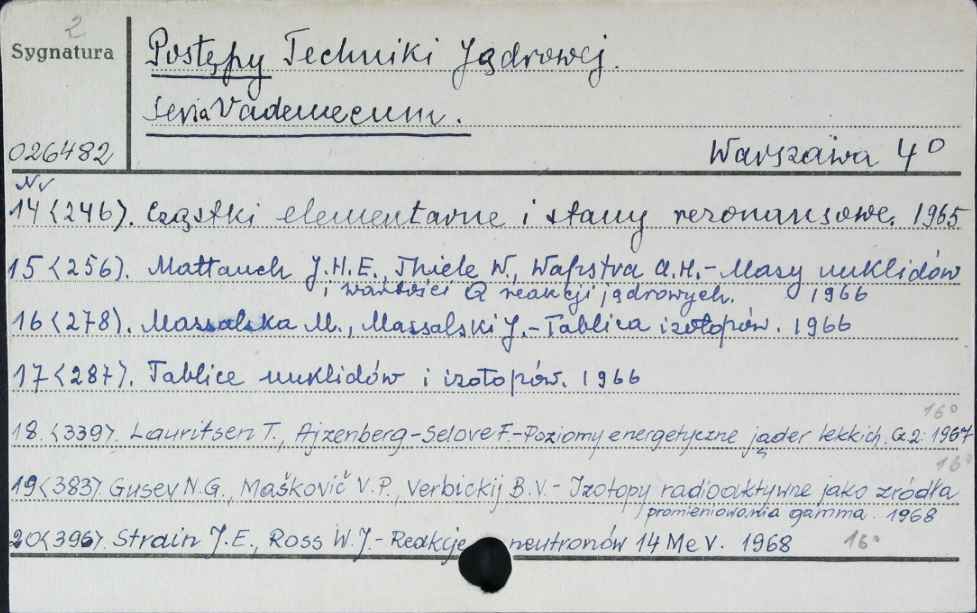 2
Sygnatura
Postępy Techniki Jądrowej.
Seria Vademecum.
026482
Warszawa 4°
Nr
14 <246>. Cząstki elementarne i stany rezonansowe. 1965
15 <256>. Mattauch J.H.E., Thiele W., Wapstra A.H. - Masy nuklidów
i wartości Q reakcji jądrowych. 1966
16 <278>. Massalska M., Massalski J. - Tablica izotopów. 1966
17 <287>. Tablice nuklidów i izotopów. 1966
16°
18. <339>. Lauritsen T., Ajzenberg-Selove F. - Poziomy energetyczne jąder lekkich. Cz.2. 1967
16°
19 <383>. Gusev N.G., Maškovič V.P., Verbickij B.V. - Izotopy radioaktywne jako źródła
promieniowania gamma. 1968
20 <396>. Strain J.E., Ross W.J. - Reakcje neutronów 14 MeV. 1968 16°